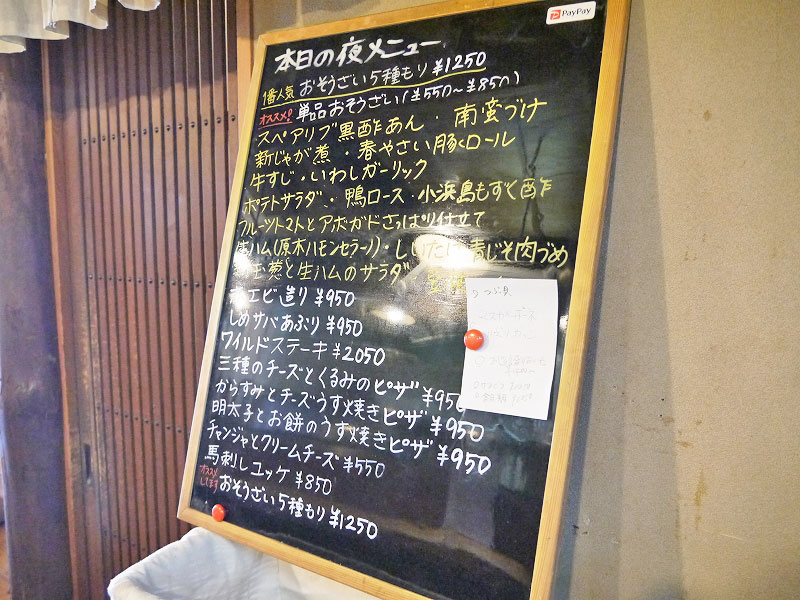 PayPay
本日の夜メニュー
1番人気 おそうざい5種もり ¥1250
オススメ! 単品おそうざい(¥550~¥850)
スペアリブ黒酢あん・南蛮づけ
新じゃが煮・春やさい豚くロール
牛すじ・いわしガーリック
ポテトサラダ・鴨ロース・小浜島もずく酢
フルーツトマトとアボガドさっぱり仕立て
生ハム(原木ハモンセラーノ)・しいたけ青じそ肉づめ
玉葱と生ハムのサラダ
エビ造り ¥950
しめサバあぶり ¥950
ワイルドステーキ ¥2050
三種のチーズとくるみのピザ ¥950
からすみとチーズうす焼きピザ ¥950
明太子とお餅のうす焼きピザ ¥950
チャンジャとクリームチーズ ¥550
馬刺しユッケ ¥850
オススメしてます おそうざい5種もり ¥1250
つぶ貝